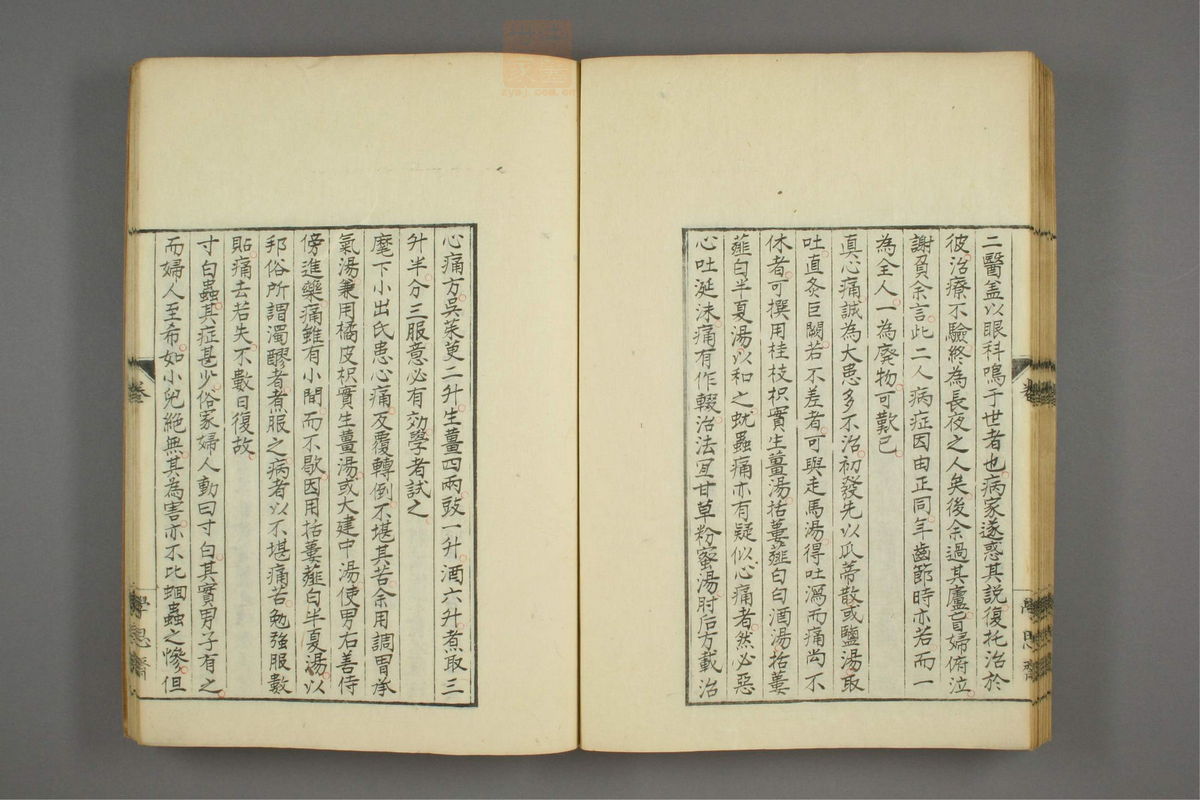 二醫盖以眼科鳴于世者也病家遂惑其説復托治於
彼治療不驗終為長夜之人矣後余過其廬盲婦俯泣
謝負余言此二人病症因由正同年齒節時亦若而一
為全人一為廢物可歎已
真心痛誠為大患多不治初發先以瓜蒂散或鹽湯取
吐直灸巨闕若不差者可與走馬湯得吐瀉而痛尚不
休者可撰用桂枝枳實生薑湯括蔞薤白白酒湯括蔞
薤白半夏湯以和之蚘蟲痛亦有疑似心痛者然必惡
心吐涎沫痛有作輟治法宜甘草粉蜜湯肘后方載治
心痛方吳茱萸二升生薑四兩豉一升酒六升煮取三
升半分三服意必有効學者試之
麾下小出氏患心痛反覆轉倒不堪其苦余用調胃承
氣湯兼用橘皮枳實生薑湯或大建中湯使男右善侍
傍進藥痛雖有小間而不歇因用括蔞薤白半夏湯以
邦俗所謂濁醪者煮服之病者以不堪痛苦勉強服數
貼痛去若失不數日復故
寸白蟲其症甚少俗家婦人動曰寸白其實男子有之
而婦人至希如小兒絶無其為害亦不比蛔蟲之慘但
卷
學思齋
zysj.com.cn